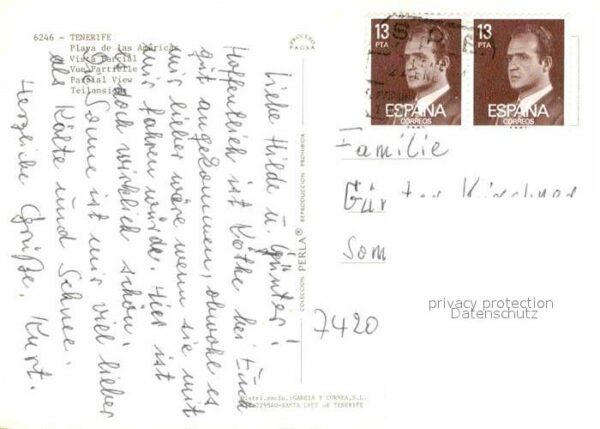 6246 - TENERIFE
Playa de las Américas
Vista Parcial
Vue Partielle
Partial View
Teilansicht
Liebe Hilde u. Günter!
Hoffentlich ist Käthe bei Euch
gut angekommen, obwohl es
mir lieber wäre wenn sie mit
mir fahren würde. Hier ist
es doch wirklich schön.
Die Sonne ist mir viel lieber
als Kälte und Schnee.
Herzliche Grüße. Kurt.
PROCEDE
PAGAR
COLECCION PERLA® REPRODUCCION PROHIBIDA
GARCIA Y CORREA, S.L.
SANTA CRUZ DE TENERIFE
13
PTA
ESPAÑA
CORREOS
13
PTA
ESPAÑA
CORREOS
Familie
Günter Kirchner
Som
7420
privacy protection
Datenschutz